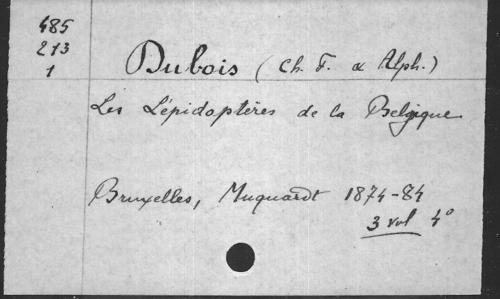 485
213
1
Dubois (Ch. F. & Alph.)
Les Lépidoptères de la Belgique
Bruxelles, Muquardt 1874-84
3 vol 4°